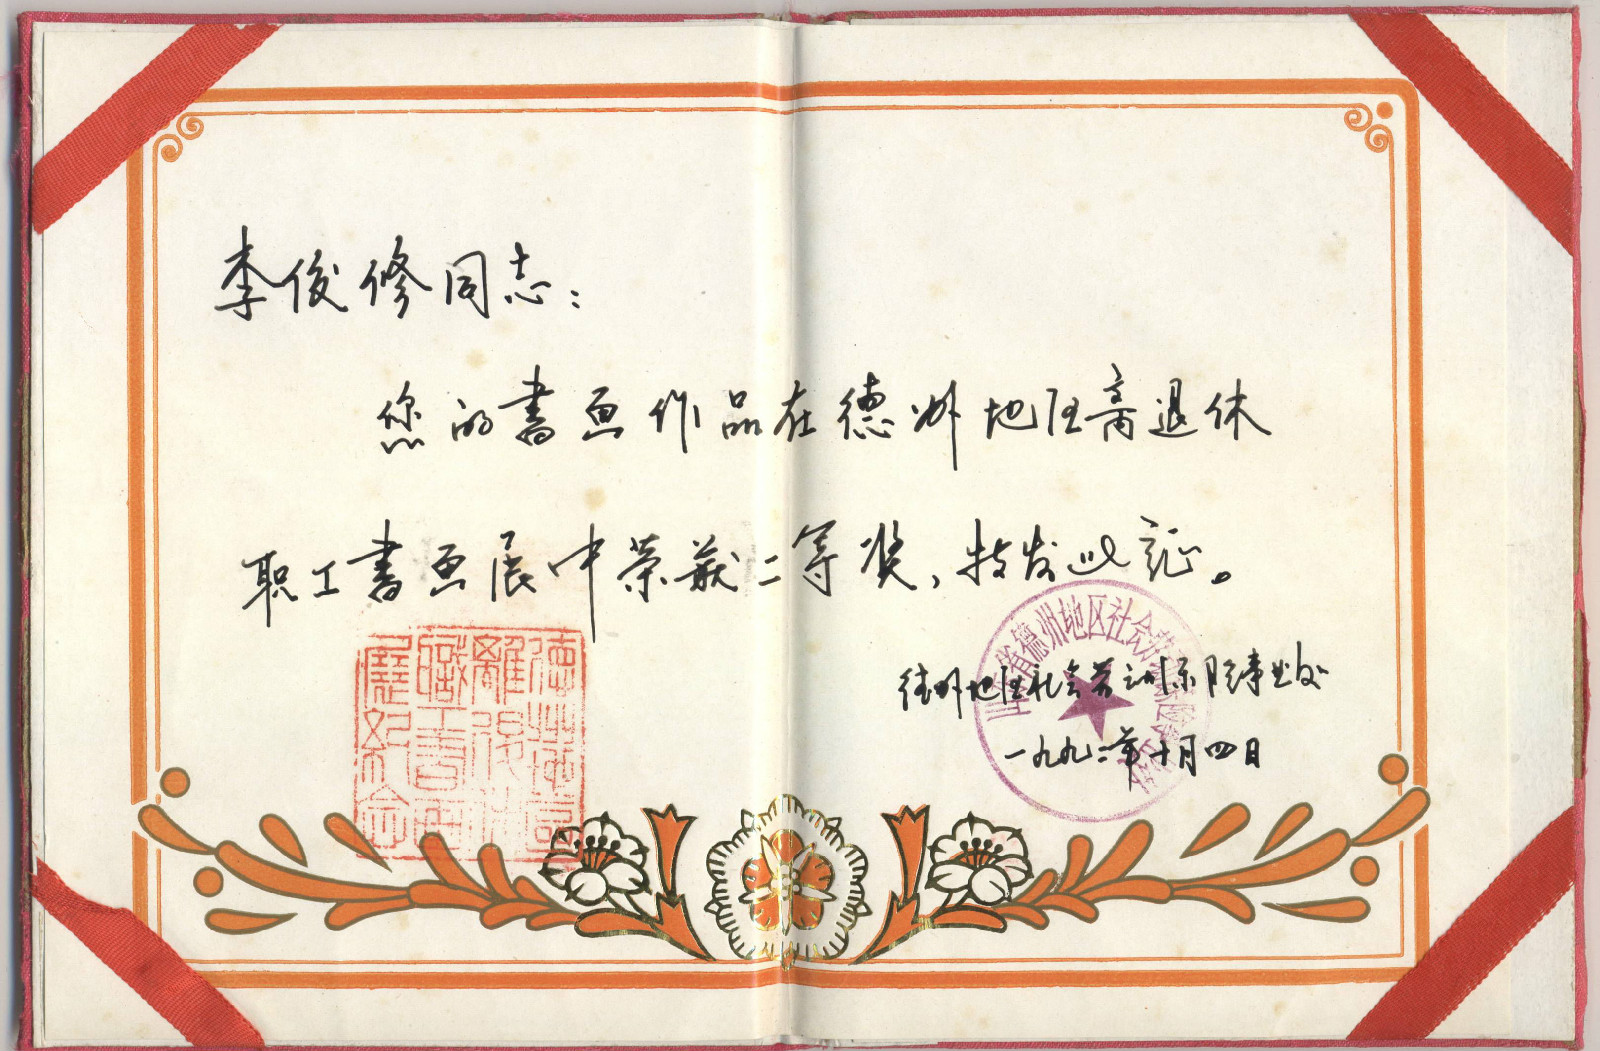 李俊修同志：
您的書画作品在德州地区离退休
职工書画展中荣获二等奖，特发此证。
德州地区社会劳动保险事业处
一九九二年十月四日
德州地區
離退休
職工書画
展紀念
山东省德州地区社会劳动保险事业处